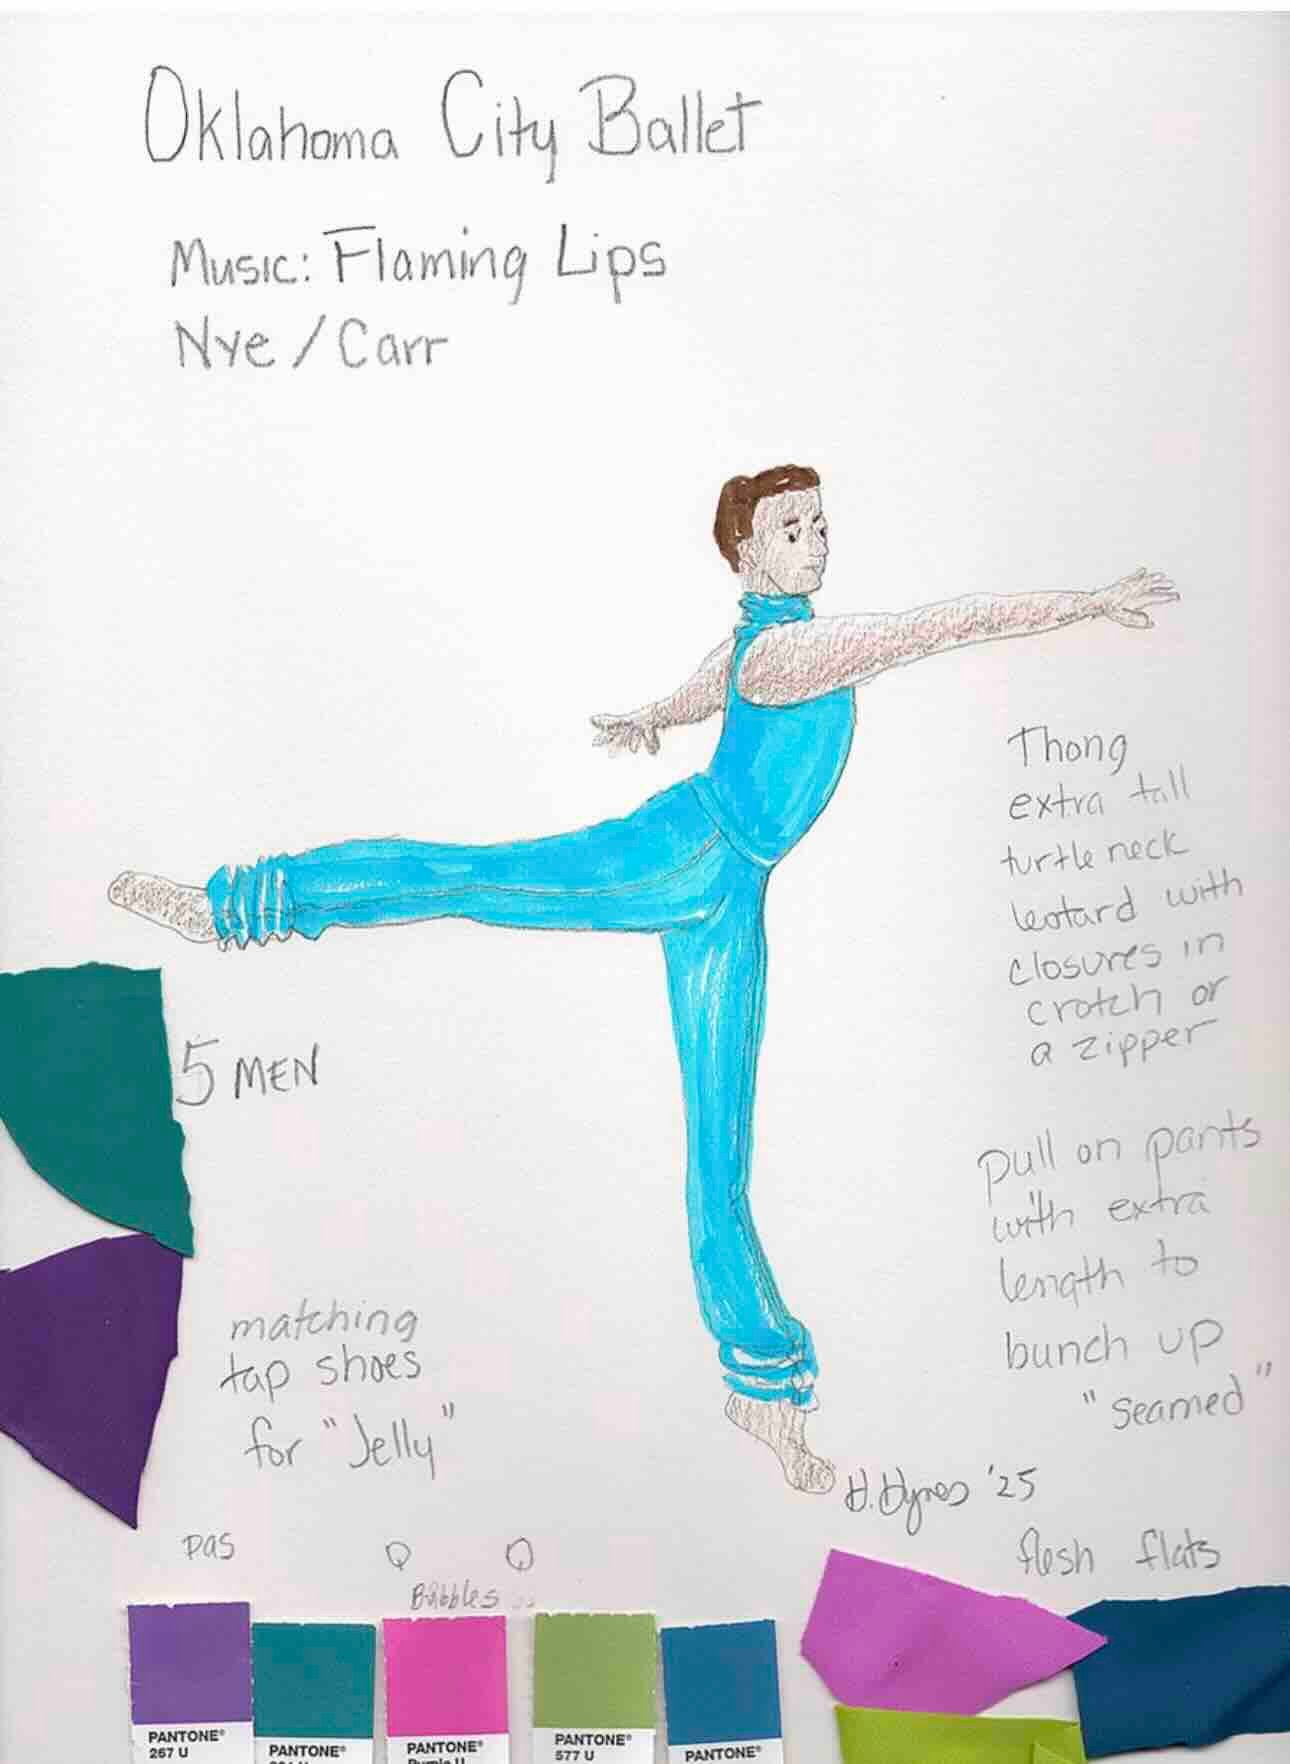 Oklahoma City Ballet
Music: Flaming Lips
Nye / Carr
Thong
extra tall
turtle neck
leotard with
closures in
crotch or
a zipper
5 MEN
pull on pants
with extra
length to
bunch up
"seamed"
matching
tap shoes
for "Jelly"
H. Hynes '25
flesh flats
pas
Bubbles
PANTONE®
267 U
PANTONE®
PANTONE®
Purple U
PANTONE®
577 U
PANTONE®